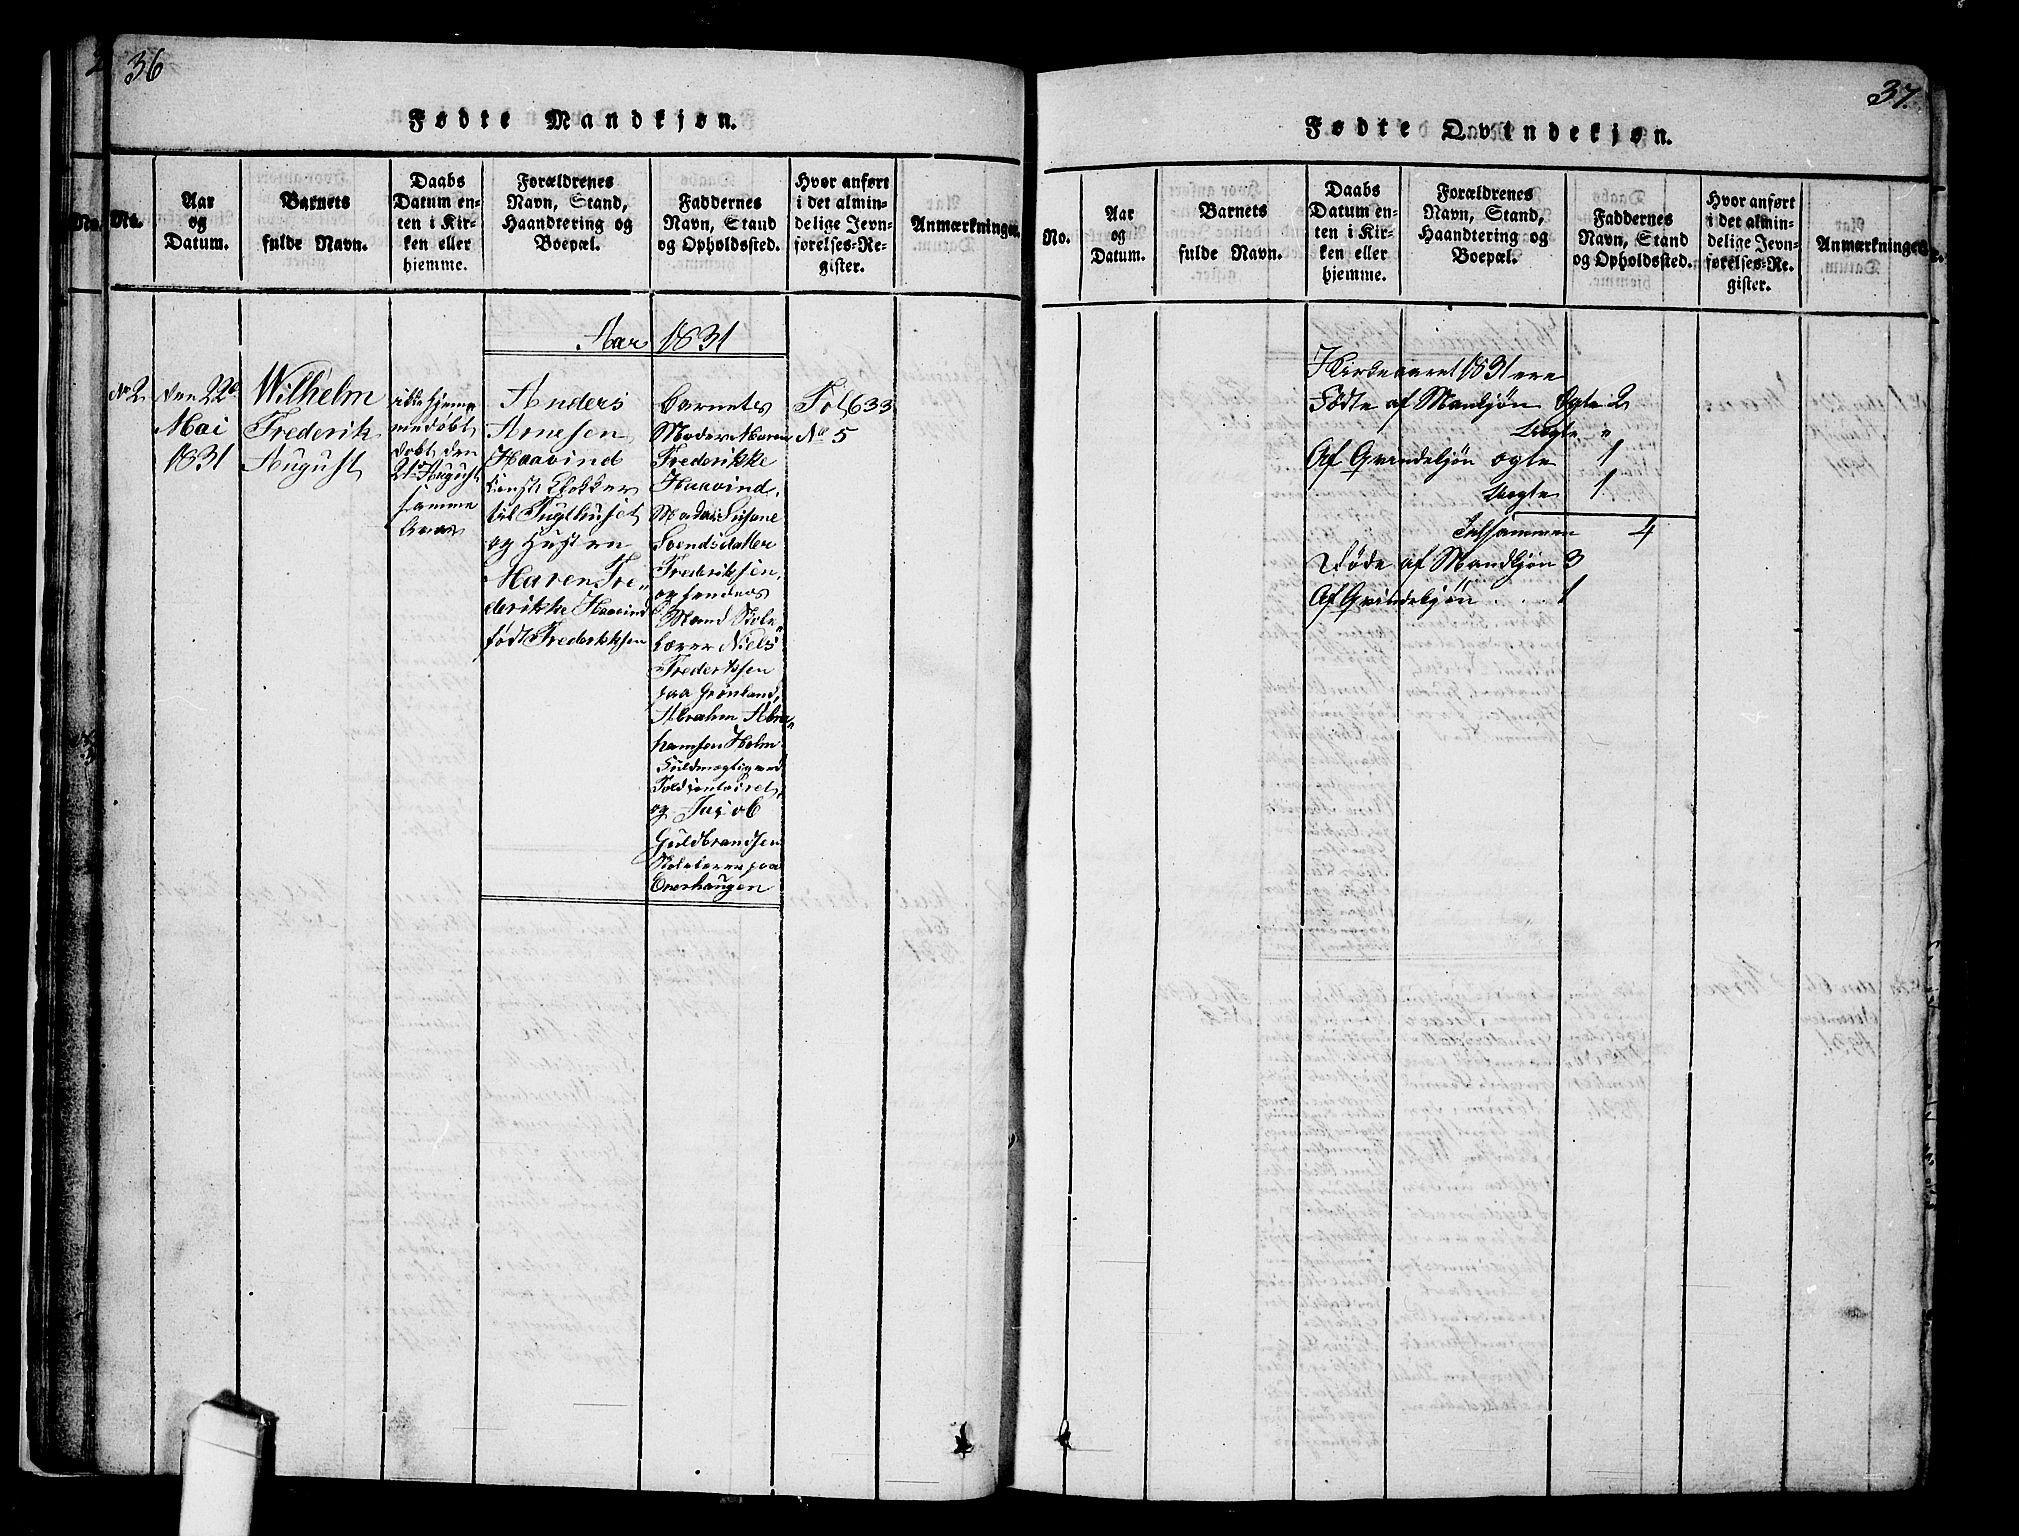 36
Fødte Mandkjøn.
No.
Aar
og
Datum.
Barnets
fulde Navn.
Daabs
Datum en-
ten i Kir-
ken eller
hjemme.
Forældrenes
Navn, Stand,
Haandtering og
Boepæl.
Faddernes
Navn, Stand
og Opholdssted.
Hvor anført
i det almin-
delige Jevn-
førelses-Re-
gister.
Anmærkninger.
Aar 1831
No 2
den 22de
Mai
1831
Wilhelm
Frederik
August
ikke hjemme
døbt
døbt den
21de August
samme
Aar
Anders
Arnesen
Haavind
Klokker
til Tugthuset
og Hustru
Maren Fre-
derikke Haavind
født Frederikksen
Barnets
Moder Maren
Frederikke
Haavind,
Madam Susane
Svendsdatter
Frederiksen,
og hendes
Mand Skole-
lærer Niels
Frederiksen
paa Grønland,
Abrahm Abra-
hamsen Holm
Fuldmægtig ved
Toldkontoiret,
og Jacob
Guldbrandsen
Skolelærer paa
Enerhaugen
Fol 633
No 5
37
Fødte Qvindekjøn.
No.
Aar
og
Datum.
Barnets
fulde Navn.
Daabs
Datum en-
ten i Kir-
ken eller
hjemme.
Forældrenes
Navn, Stand,
Haandtering og
Boepæl.
Faddernes
Navn, Stand
og Opholdssted.
Hvor anført
i det almin-
delige Jevn-
førelses-Re-
gister.
Anmærkninger.
I Kirkeaaret 1831 ere
Fødte af Mankjøn Ægte 2
Uægte "
Af Qvindekjøn ægte 1
Uægte 1
Tilsammen 4
Døde af Mandkjøn 3
Af Qvindekjøn . . 1